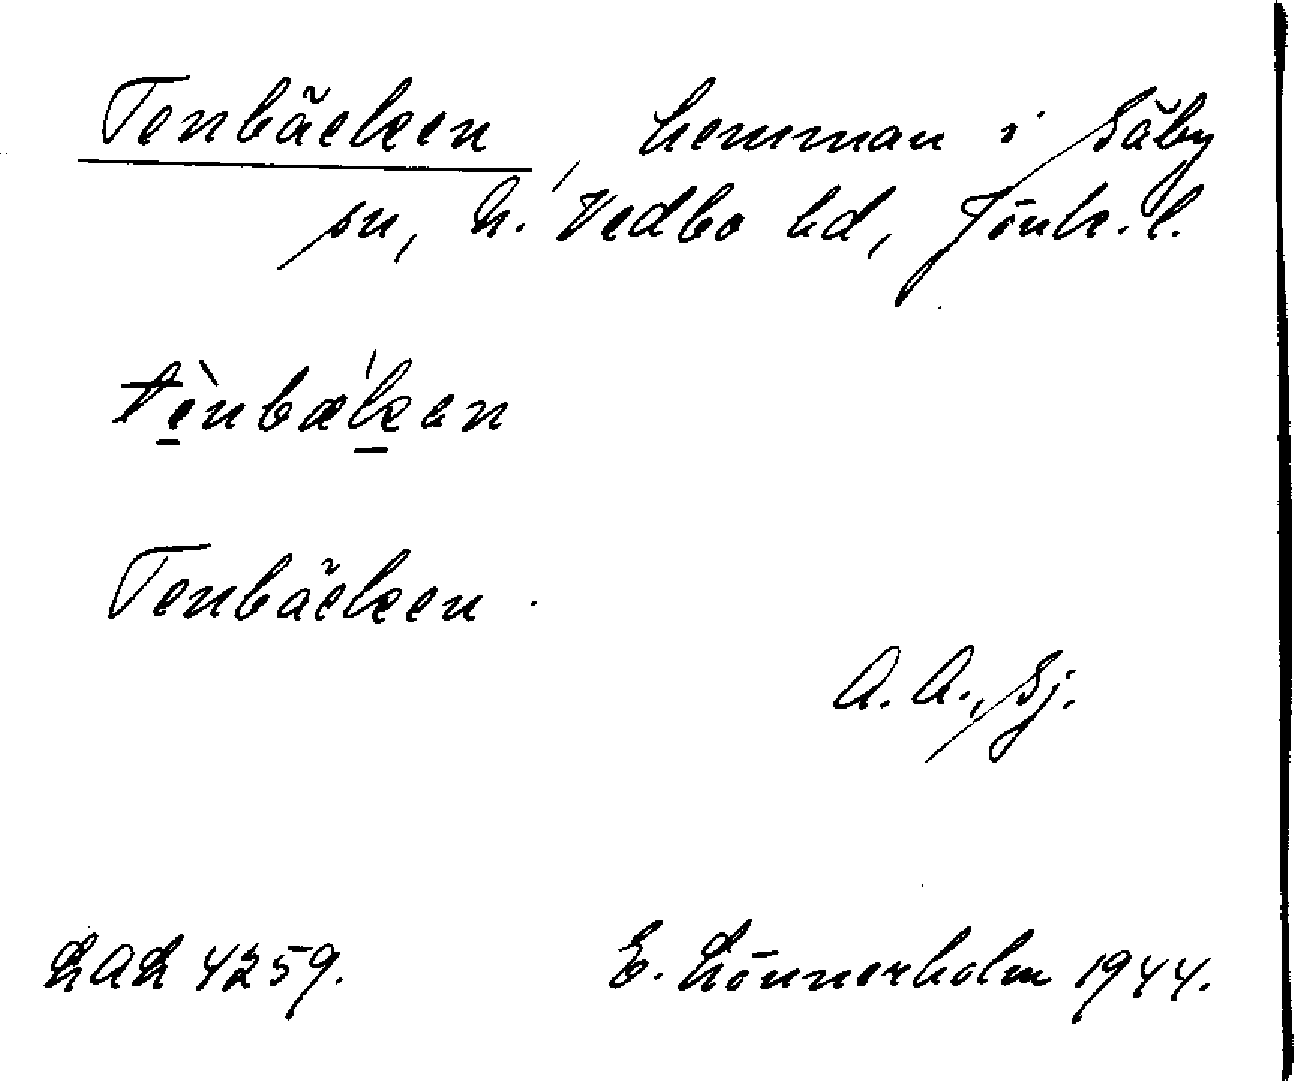 Tenbäcken, hemman i Säby
sn, N. Vedbo hd, Jönk. l.
tènbæ´ken
Tenbäcken
A. A., Sj.
LAL 4259.
E. Lönnerholm 1944.